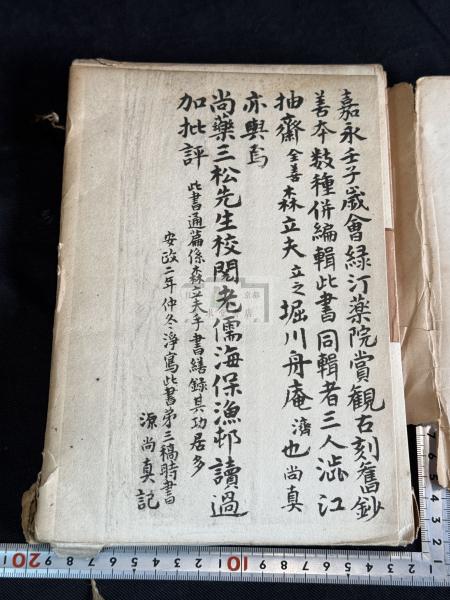 嘉永壬子歳會緑汀藥院賞觀古刻舊鈔
善本数種併編輯此書同輯者三人澁江
抽齋全善森立夫立之堀川舟庵濟也尚真
亦與焉
尚藥三松先生校閲老儒海保漁邨讀過
加批評
此書通篇係森立夫手書繕錄其功居多
安政二年仲冬淨寫此書第三稿時書
源尚真記
20
10
7
6
5
4
3
2
1